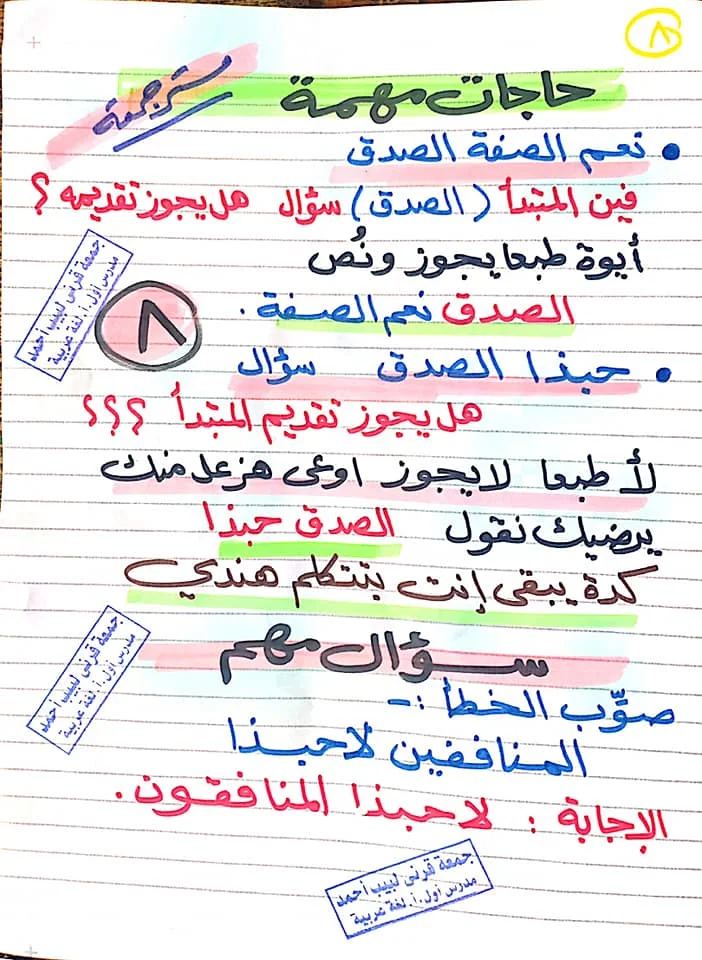 ٨
حاجات مهمة
مسترجمعة
• نعم الصفة الصدق
فين المبتدأ (الصدق) سؤال هل يجوز تقديمه؟
أيوة طبعا يجوز ونُص
الصدق نعم الصفة.
٨
• حبذا الصدق سؤال
هل يجوز تقديم المبتدأ ؟؟؟
لأ طبعا لايجوز اوعى هزعل منك
يرضيك نقول الصدق حبذا
كدة يبقى إنت بتتكلم هندي
سؤال مهم
صوِّب الخطأ :-
المنافقين لاحبذا
الإجابة : لاحبذا المنافقون.
جمعة قرنى لبيب احمد
مدرس أول.أ. لغة عربية
جمعة قرنى لبيب احمد
مدرس أول.أ. لغة عربية
جمعة قرنى لبيب احمد
مدرس أول.أ. لغة عربية